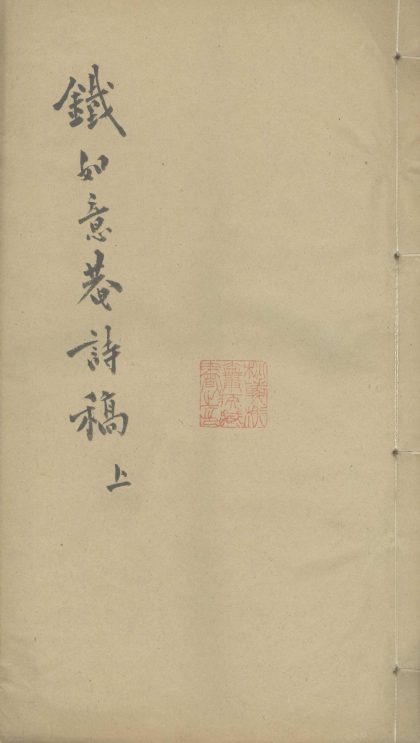 鐵如意菴詩稿
上